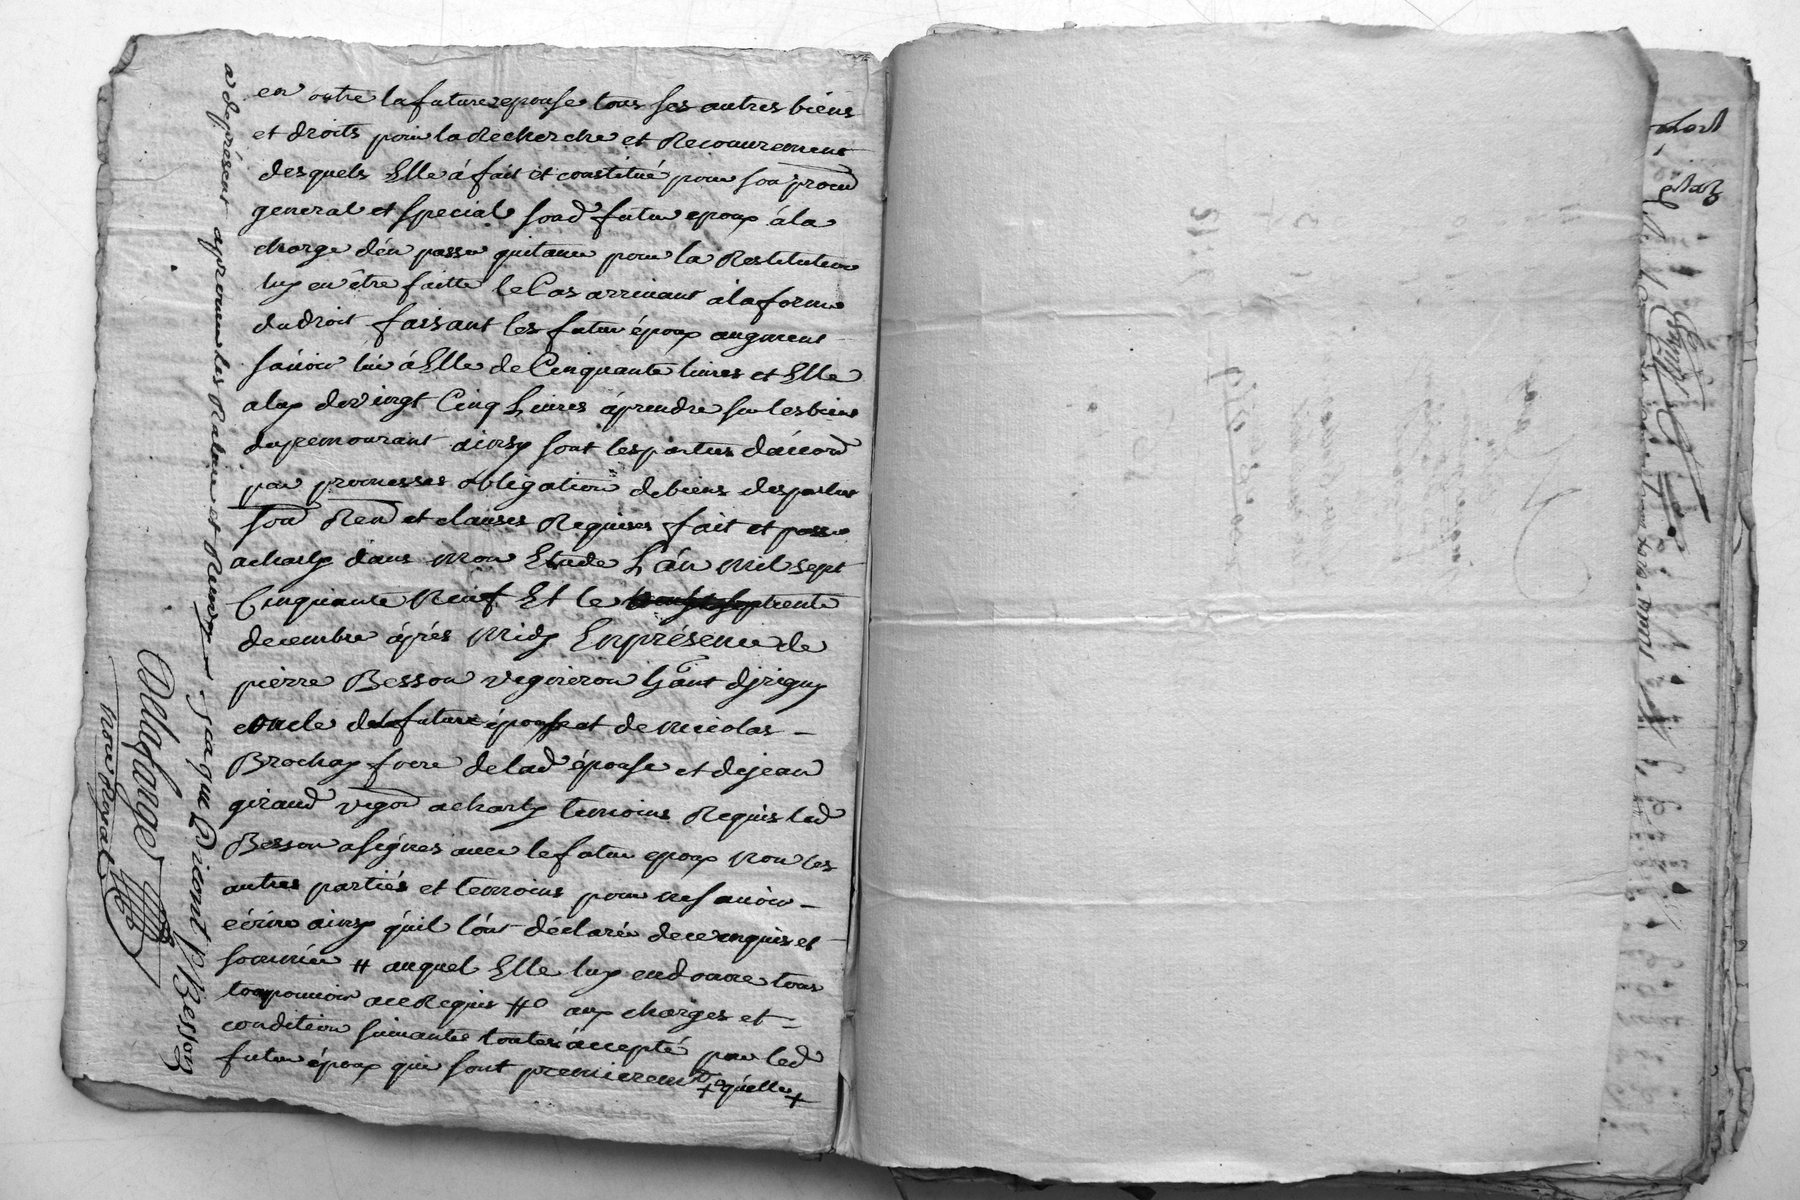 en outre la future epouse tous ses autres biens
et droits pour la Recherche et Recouvrement
desquels Elle á fait et constitué pour son procur
general et special sond futur epoux á la
charge dén passer quitance pour la Restitution
luy en être faitte le Cas arrivant á la forme
du droit faisant les futur époux augment
sávoir lui á Elle de Cinquante livres et Elle
a luy de vingt Cinq Livres áprendre sur les biens
du premourant ainsy sont les parties dáccord
par promesses obligation de biens des parties
soud Ren et clauses Requises fait et passé
a charly dans mon Etude L'án mil sept
Cinquante Neuf Et le trente
decembre áprés Midy En présence de
pierre Besson vigneron hánt dirigny
oncle de la future épouse et de nicolas
Brochay frere de lad épouse et de jean
giraud vigon a charly temoins Requis led
Besson a signés avec le futur epoux non les
autres partiés et temoins pour ne savoir
écrire ainsy quil lónt déclarée de ce enquis et
sommée # auquel Elle luy en donne tous
pouvoir a ce Requis # aux charges et
condition suivantes toutes áccepté par led
futur époux qui sont premierement + quelle +
a déprésent aprouvé les Rature et Renvoys
jcaque Dicont P Besson
Delafarge
nore Royal